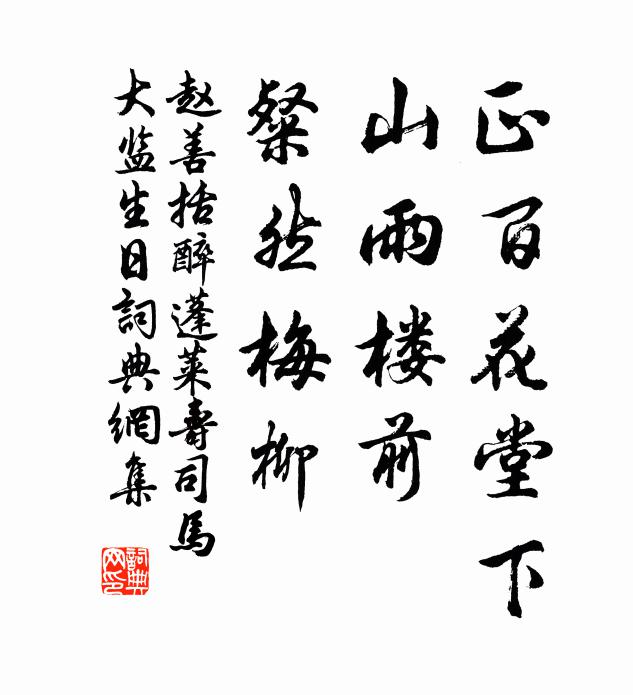 正百花堂下
山雨楼前
粲然梅柳
赵善括醉蓬莱壽司馬
大监生日詞典網集
詞典网印